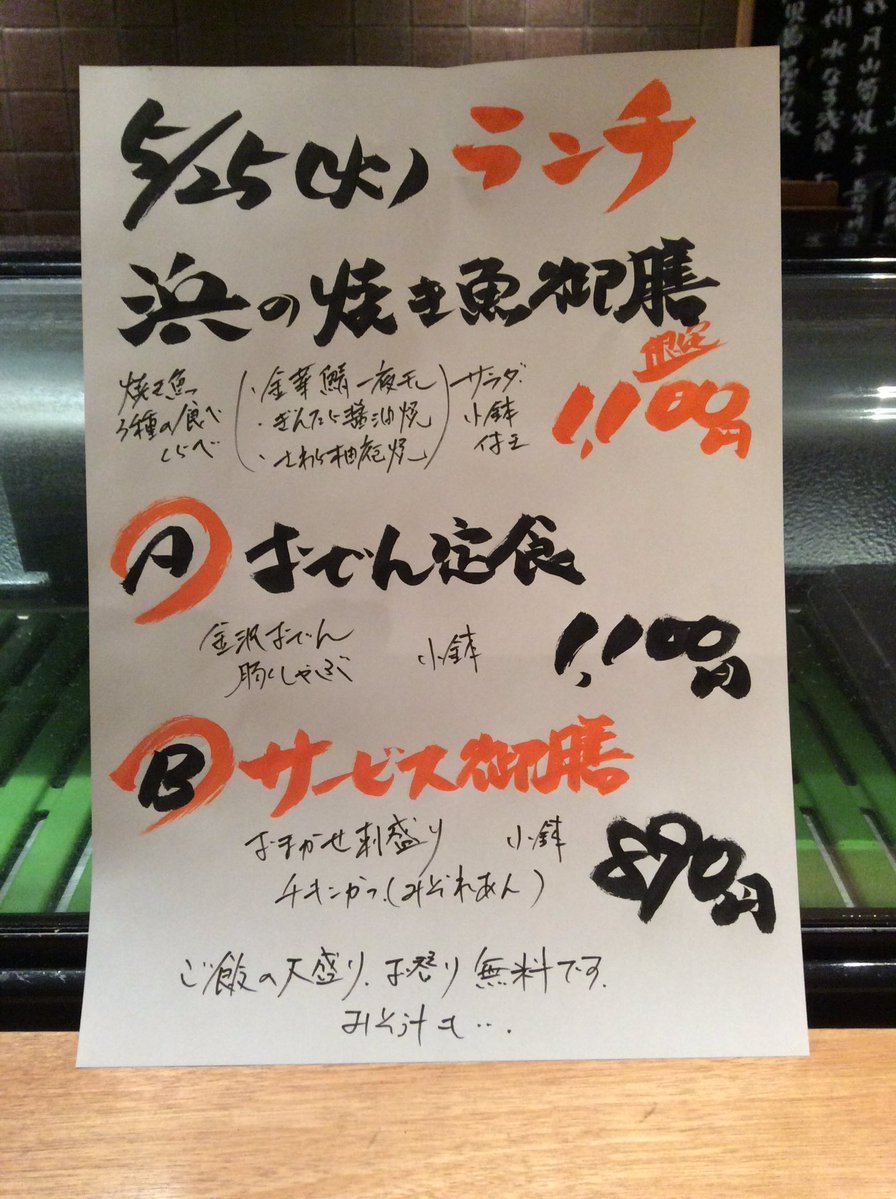 5/25(火) ランチ
浜の焼き魚御膳
焼き魚
3種の食べ
くらべ
・金華鯖一夜干し
・ぎんだら醤油焼
・さわら柚庵焼
サラダ
小鉢
付き
限定
1,100円
A おでん定食
金沢おでん
豚しゃぶ
小鉢
1,100円
B サービス御膳
おまかせ刺盛り 小鉢
チキンかつ(みぞれあん)
890円
ご飯の大盛り、お替り無料です。
みそ汁も…。